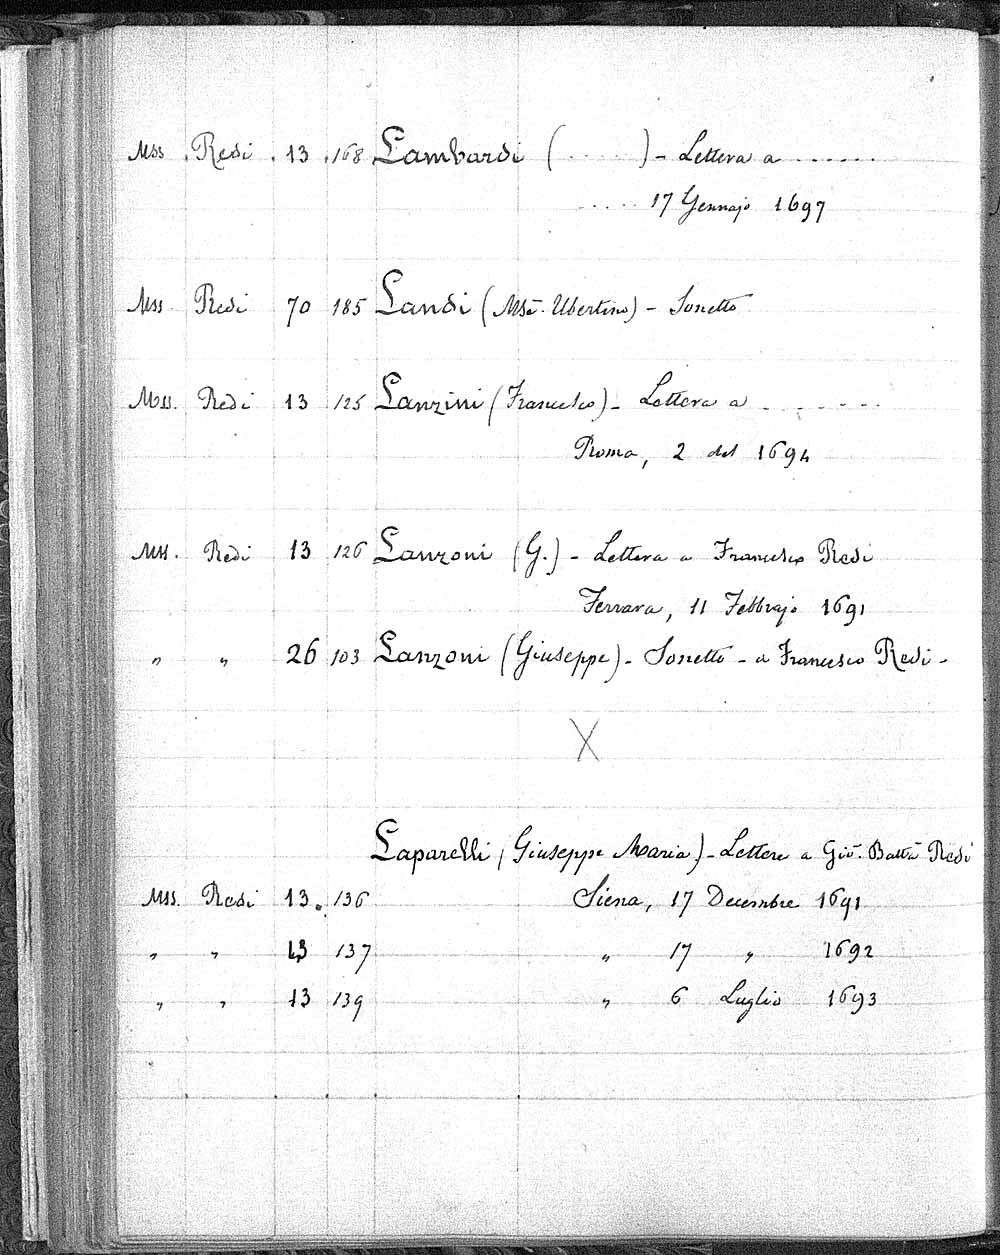 Mss . Redi . 13 . 168 Lambardi ( . . . . . ) - Lettera a . . . . . .
. . . . . 17 Gennajo 1697
Mss Redi 70 185 Landi (Mse. Ubertino) - Sonetto
Mss. Redi 13 125 Lanzini (Francesco) - Lettera a . . . . . . .
Roma, 2 del 1694
Mss. Redi 13 126 Lanzoni (G.) - Lettera a Francesco Redi
Ferrara, 11 Febbrajo 1691
" " 26 103 Lanzoni (Giuseppe) - Sonetto - a Francesco Redi -
X
Laparelli (Giuseppe Maria) - Lettere a Gio. Batta Redi
Mss. Redi 13. 136 Siena, 17 Decembre 1691
" " 13 137 " 17 " 1692
" " 13 139 " 6 Luglio 1693